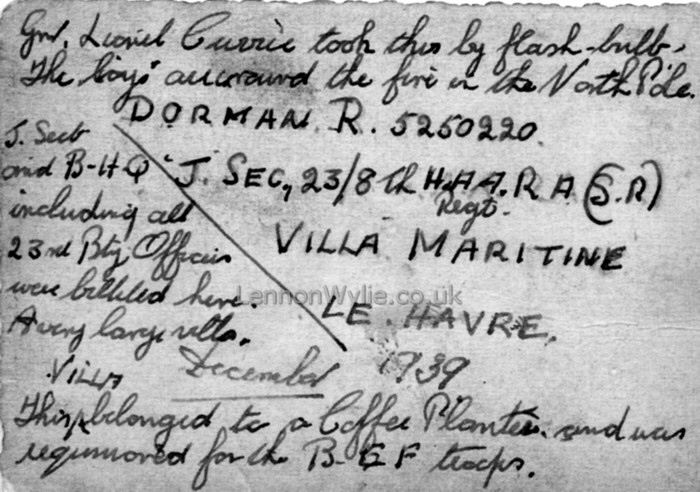 Gnr. Lionel Currie took this by flash-bulb.
The boys around the fire in the North Pole.
DORMAN. R. 5250220.
J. Sect
and B-H-Q
including all
23rd Bty Officers
were billeted here.
A very large villa.
"J. SEC, 23/8th H.A.A. R A (S.R)
Regt.
VILLA MARITINE
LennonWylie.co.uk
LE. HAVRE.
December 1939
VILLA
This belonged to a Coffee Planter. and was
requisioned for the B-E F troops.